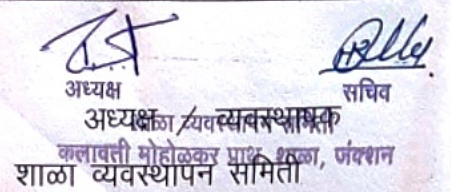 अध्यक्ष सचिव
अध्यक्ष / व्यवस्थापक
शाळा व्यवस्थापन समिती
कलावती मोहोळकर प्राथ. शाळा, जंक्शन
शाळा व्यवस्थापन समिती